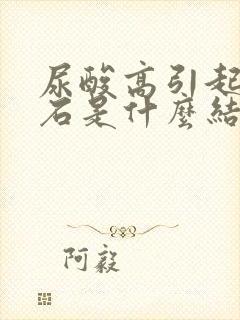 尿酸高引起
石是什麼結
阿毅